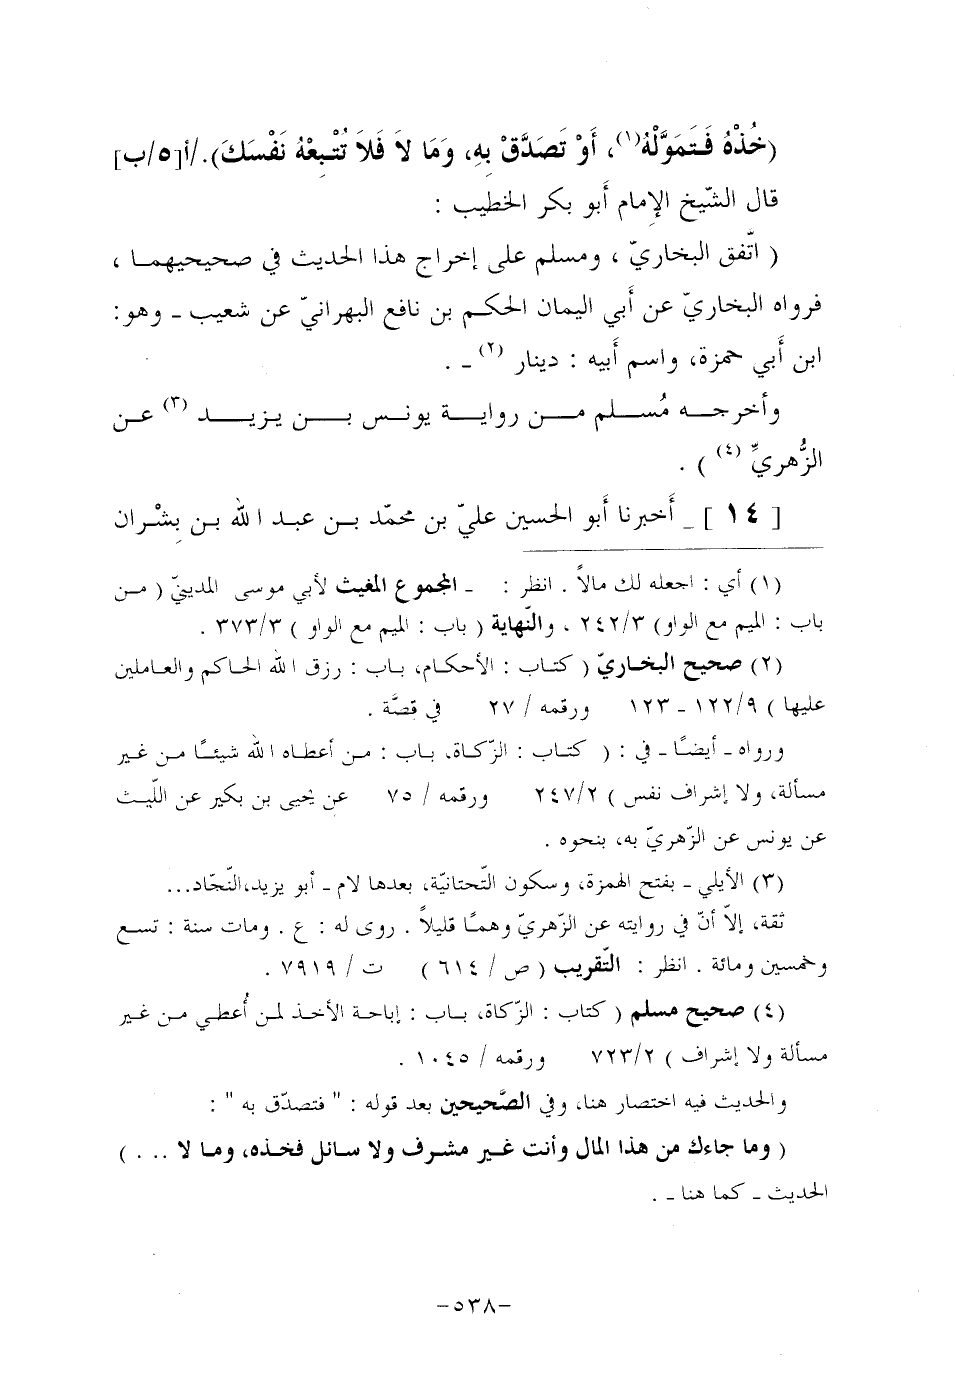 (خُذْهُ فَتَمَوَّلْهُ(١)، أَوْ تَصَدَّقْ بِهِ، وَمَا لاَ فَلاَ تُتْبِعْهُ نَفْسَكَ)./أ[٥/ب]
قال الشّيخ الإمام أبو بكر الخطيب :
( اتَّفق البخاريّ ، ومسلم على إخراج هذا الحديث في صحيحيهما ،
فرواه البخاريّ عن أبي اليمان الحكم بن نافع البهرانيّ عن شعيب ـ وهو:
ابن أبي حمزة، واسم أبيه : دينار (٢) ـ .
وأخرجه مُسلم من رواية يونس بن يزيد (٣) عن
الزُّهريِّ (٤) ) .
[ ١٤ ] ـ أخبرنا أبو الحسين عليّ بن محمّد بن عبد الله بن بِشْران
(١) أي : اجعله لك مالاً . انظر : ـ المجموع المغيث لأبي موسى المدينيّ ( من
باب : الميم مع الواو) ٢٤٢/٣ ، والنّهاية ( باب : الميم مع الواو ) ٣٧٣/٣ .
(٢) صحيح البخاريّ ( كتاب : الأحكام، باب : رزق الله الحاكم والعاملين
عليها ) ١٢٢/٩ ـ ١٢٣ ورقمه / ٢٧ في قصَّة .
ورواه ـ أيضًا ـ في : ( كتاب : الزّكاة، باب : من أعطاه الله شيئًا من غير
مسألة، ولا إشراف نفس ) ٢٤٧/٢ ورقمه / ٧٥ عن يحيى بن بكير عن اللّيث
عن يونس عن الزّهريّ به، بنحوه .
(٣) الأيلي ـ بفتح الهمزة، وسكون التّحتانيّة، بعدها لام ـ أبو يزيد،النّجّاد...
ثقة، إلاّ أنّ في روايته عن الزّهريّ وهمًا قليلاً . روى له : ع . ومات سنة : تسع
وخمسين ومائة . انظر : التّقريب ( ص / ٦١٤ ) ت / ٧٩١٩ .
(٤) صحيح مسلم ( كتاب : الزّكاة، باب : إباحة الأخذ لمن أُعطي من غير
مسألة ولا إشراف ) ٧٢٣/٢ ورقمه / ١٠٤٥ .
والحديث فيه اختصار هنا، وفي الصَّحيحين بعد قوله : " فتصدّق به " :
( وما جاءك من هذا المال وأنت غير مشرف ولا سائل فخذه، وما لا ... )
الحديث ـ كما هنا ـ .
-٥٣٨-